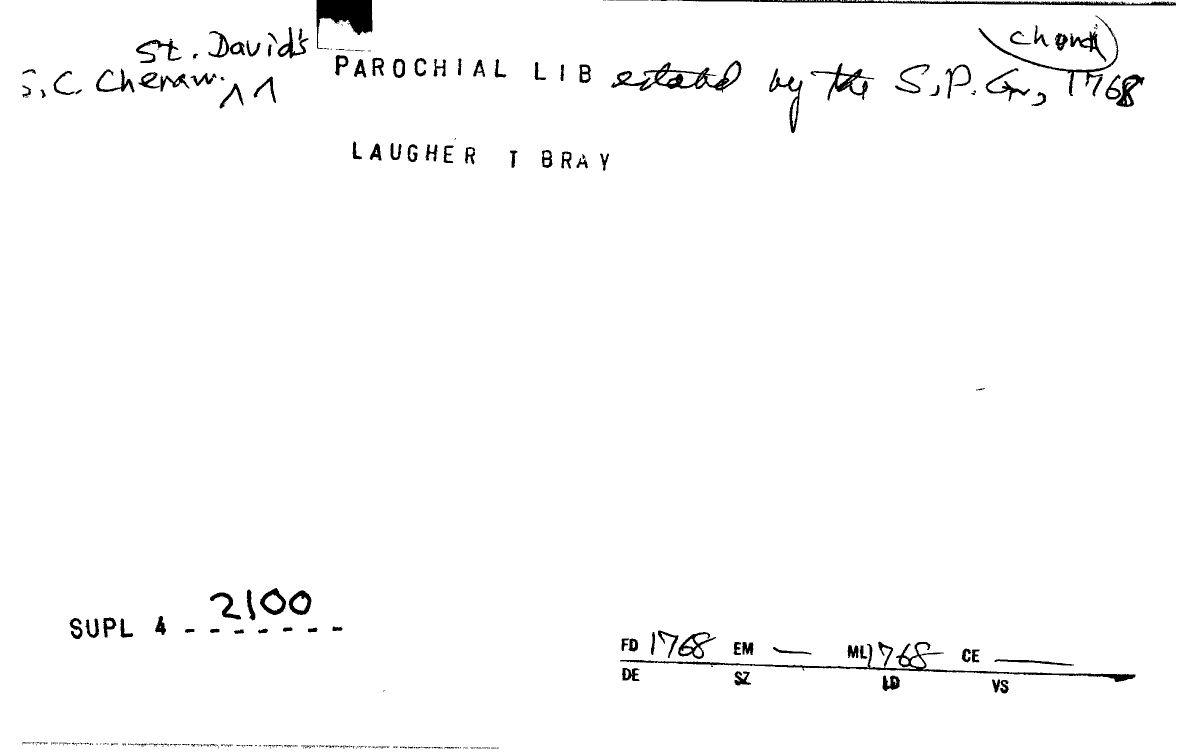 chond
St. David's
S.C. Cheraw. ^^ PAROCHIAL LIB estabd by the S.P.G., 1768
LAUGHER T BRAY
SUPL 4 - - - - - - - 2100
FD 1768 EM — ML 1768 CE —
DE SZ LD VS